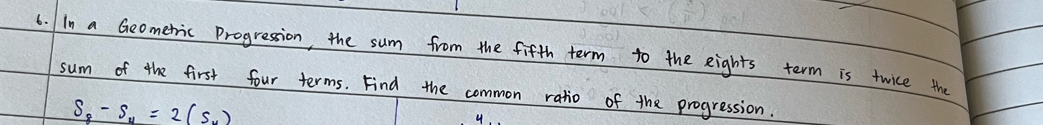 6. In a Geometric Progression, the sum from the fifth term to the eights term is twice the
sum of the first four terms. Find the common ratio of the progression.
S₈ - S₄ = 2(S₄)